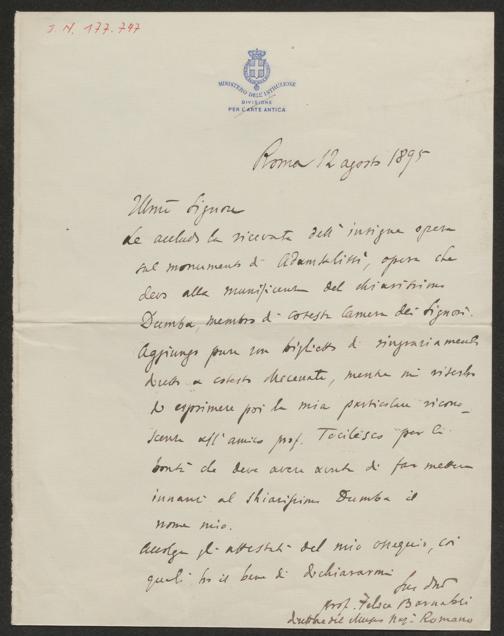 I. N. 177.747
MINISTERO DELL'ISTRUZIONE
DIVISIONE
PER L'ARTE ANTICA
Roma 12 agosto 1895
Illmo Signore
Le accludo la ricevuta dell'insigne opera
sul monumento di Adamklissi, opera che
devo alla munificenza del chiarissimo
Dumba, membro di cotesta Camera dei Signori.
Aggiungo pure un biglietto di ringraziamento
diretto a cotesto Mecenate, mentre mi riserbo
di esprimere poi la mia particolare ricono-
scenza all'amico prof. Tocilesco per la
bontà che deve avere avuta di far mettere
innanzi al chiarissimo Dumba il
nome mio.
Accolga gli attestati del mio ossequio, coi
quali ho il bene di dichiararmi
Suo
prof. Felice Barnabei
Direttore del Museo Naz. Romano